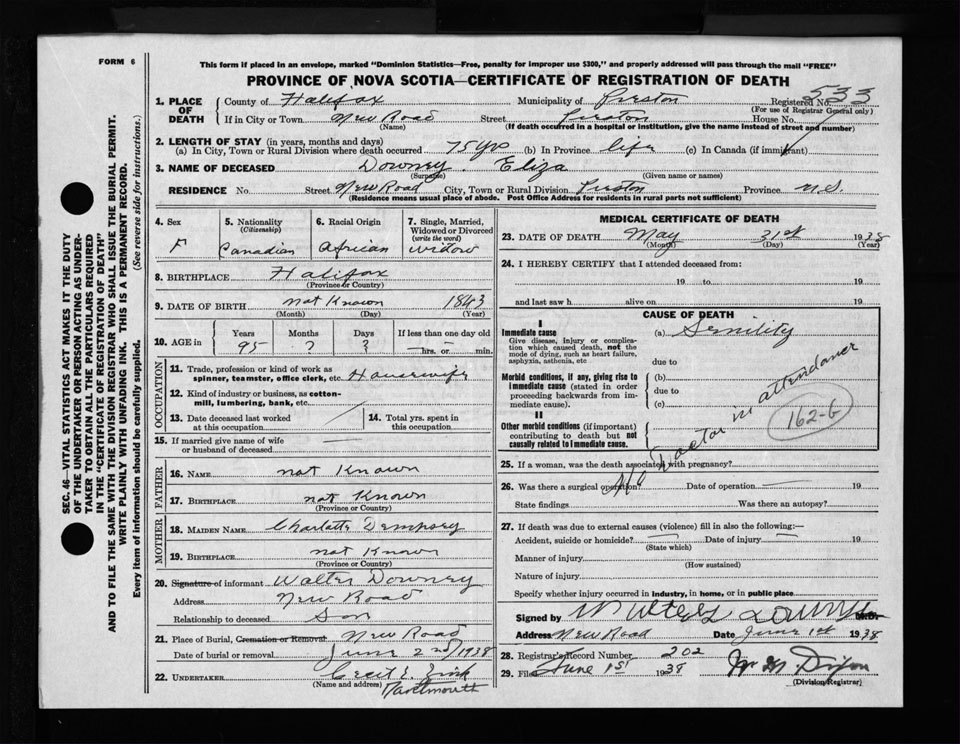 FORM 6
This form if placed in an envelope, marked "Dominion Statistics—Free, penalty for improper use $300," and properly addressed will pass through the mail "FREE"
PROVINCE OF NOVA SCOTIA—CERTIFICATE OF REGISTRATION OF DEATH
533
1. PLACE OF DEATH County of Halifax Municipality of Preston Registered No.
(For use of Registrar General only)
If in City or Town New Road Street Preston House No.
(Name) (If death occurred in a hospital or institution, give the name instead of street and number)
2. LENGTH OF STAY (in years, months and days)
(a) In City, Town or Rural Division where death occurred 75 yrs (b) In Province life (c) In Canada (if immigrant)
3. NAME OF DECEASED Downey. Eliza
(Surname) (Given name or names)
RESIDENCE No. Street New Road City, Town or Rural Division Preston Province N.S.
(Residence means usual place of abode. Post Office Address for residents in rural parts not sufficient)
SEC. 46—VITAL STATISTICS ACT MAKES IT THE DUTY
OF THE UNDERTAKER OR PERSON ACTING AS UNDER-
TAKER TO OBTAIN ALL THE PARTICULARS REQUIRED
IN THE "CERTIFICATE OF REGISTRATION OF DEATH"
AND TO FILE THE SAME WITH THE DIVISION REGISTRAR WHO SHALL ISSUE THE BURIAL PERMIT.
WRITE PLAINLY WITH UNFADING INK. THIS IS A PERMANENT RECORD.
Every item of information should be carefully supplied. (See reverse side for instructions.)
4. Sex 5. Nationality 6. Racial Origin 7. Single, Married,
(Citizenship) Widowed or Divorced
(write the word)
F Canadian African widow
8. BIRTHPLACE Halifax
(Province or Country)
9. DATE OF BIRTH not Known 1843
(Month) (Day) (Year)
10. AGE in Years Months Days If less than one day old
95 ? ? hrs. or min.
OCCUPATION
11. Trade, profession or kind of work as
spinner, teamster, office clerk, etc. Housewife
12. Kind of industry or business, as cotton-
mill, lumbering, bank, etc.
13. Date deceased last worked 14. Total yrs. spent in
at this occupation this occupation
15. If married give name of wife
or husband of deceased
FATHER
16. NAME not Known
17. BIRTHPLACE not Known
(Province or Country)
MOTHER
18. MAIDEN NAME Charlotte Dempsey
19. BIRTHPLACE not Known
(Province or Country)
20. Signature of informant Walter Downey
Address New Road
Relationship to deceased Son
21. Place of Burial, Cremation or Removal New Road
Date of burial or removal June 2nd/1938
22. UNDERTAKER Cecil E. Zink
(Name and address) Dartmouth
MEDICAL CERTIFICATE OF DEATH
23. DATE OF DEATH May 31st 1938
(Month) (Day) (Year)
24. I HEREBY CERTIFY that I attended deceased from:
19 to 19
and last saw h alive on 19
CAUSE OF DEATH
I
Immediate cause (a) Senility
Give disease, injury or complica-
tion which caused death, not the
mode of dying, such as heart failure,
asphyxia, asthenia, etc
due to
Morbid conditions, if any, giving rise to
immediate cause (stated in order
proceeding backwards from im-
mediate cause).
(b)
due to
(c)
II
Other morbid conditions (if important)
contributing to death but not
causally related to immediate cause.
No Doctor in attendance
162-b
25. If a woman, was the death associated with pregnancy?
26. Was there a surgical operation? Date of operation 19
State findings Was there an autopsy?
27. If death was due to external causes (violence) fill in also the following:—
Accident, suicide or homicide? Date of injury 19
(State which)
Manner of injury
(How sustained)
Nature of injury
Specify whether injury occurred in industry, in home, or in public place
Signed by Downey M.D.
Address New Road Date June 1st 1938
28. Registrar's Record Number 202
29. Filed June 1st 1938 Dixon
(Division Registrar)